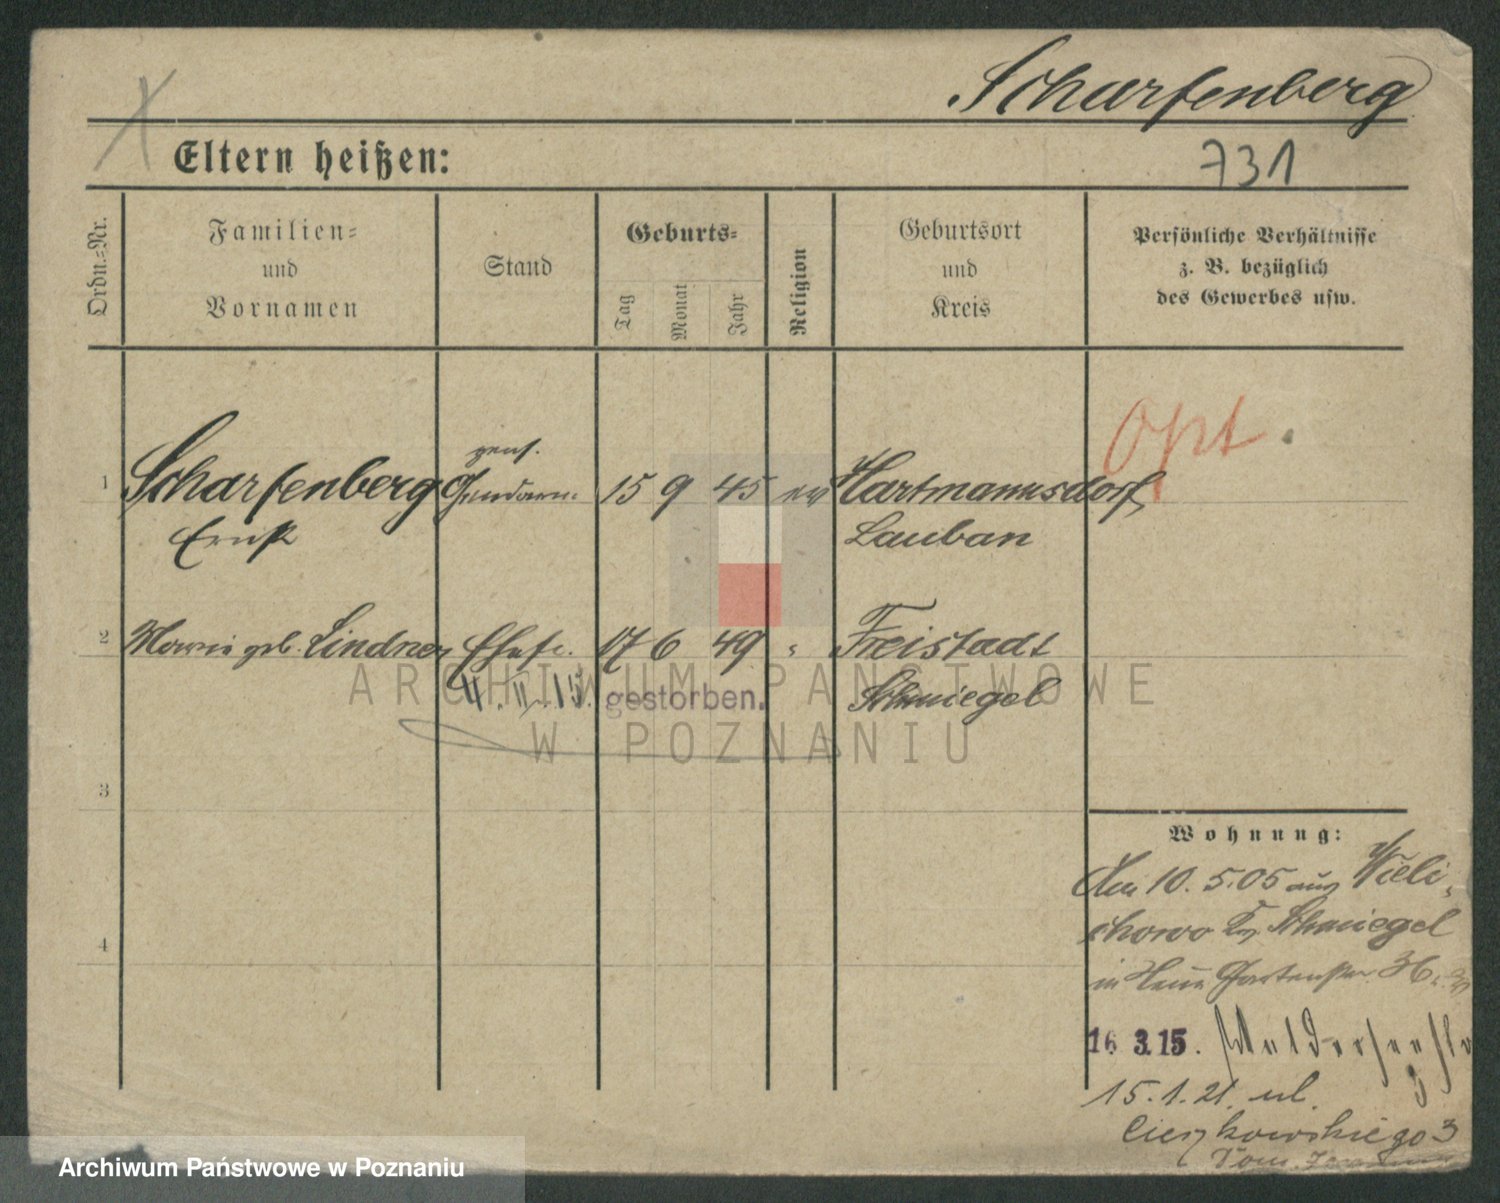 Scharfenberg
Eltern heißen:
731
Ordn.-Nr.
Familien-
und
Vornamen
Stand
Geburts-
Tag
Monat
Jahr
Religion
Geburtsort
und
Kreis
Persönliche Verhältnisse
z. B. bezüglich
des Gewerbes usw.
Opt.
pens.
1 Scharfenberg Gendarm. 15 9 45 ev Hartmannsdorf
Lauban
2 Marie geb. Lindner Ehefr. 17 6 49 " Freistadt
4. II. 15. gestorben. Schmiegel
3
4
Wohnung:
10. 5. 05 aus Wieli-
chowo Kr. Schmiegel
in Gartenstr.
16. 3. 15. Waldersee
15. 1. 21. ul.
Cieszkowskiego 3
ARCHIWUM PAŃSTWOWE
W POZNANIU
Archiwum Państwowe w Poznaniu